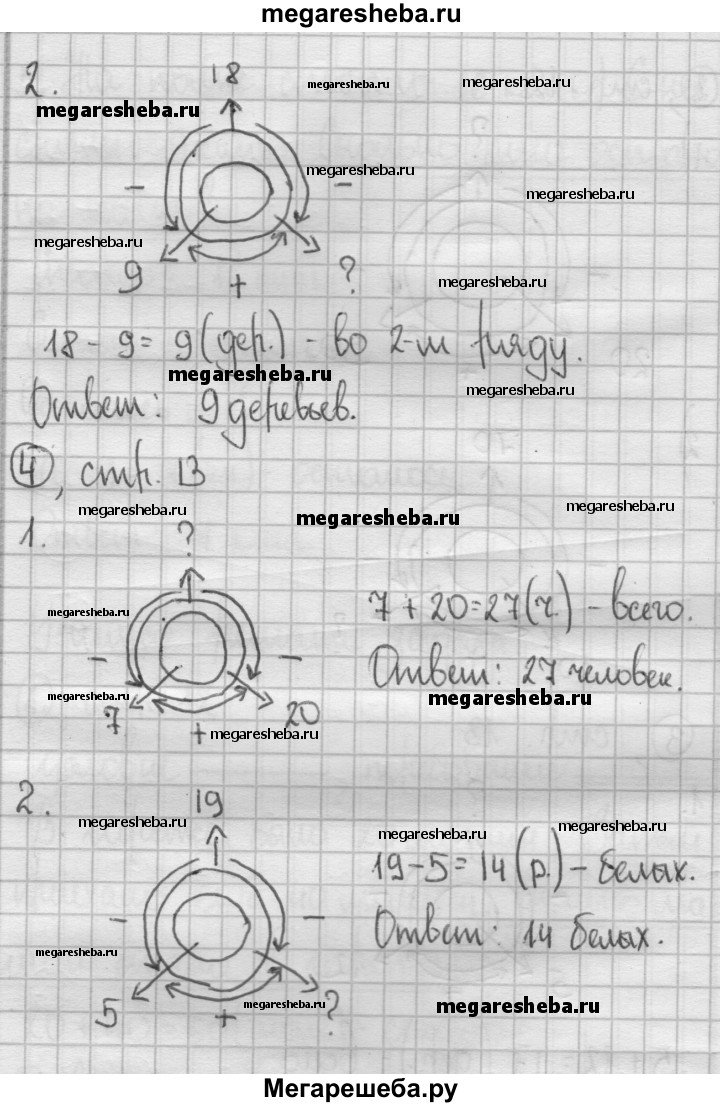 megaresheba.ru
2.
18
megaresheba.ru
megaresheba.ru
megaresheba.ru
megaresheba.ru
-
-
megaresheba.ru
megaresheba.ru
9
+
?
megaresheba.ru
18 - 9 = 9 (дер.) - во 2-м ряду.
megaresheba.ru
Ответ: 9 деревьев.
megaresheba.ru
4, стр. 13
megaresheba.ru
megaresheba.ru
megaresheba.ru
1.
?
megaresheba.ru
7 + 20 = 27 (ч.) - всего.
-
-
Ответ: 27 человек.
megaresheba.ru
megaresheba.ru
7
+
20
megaresheba.ru
2.
19
megaresheba.ru
megaresheba.ru
megaresheba.ru
19 - 5 = 14 (р.) - белых.
-
-
Ответ: 14 белых.
megaresheba.ru
5
+
?
megaresheba.ru
megaresheba.ru
Мегарешеба.ру